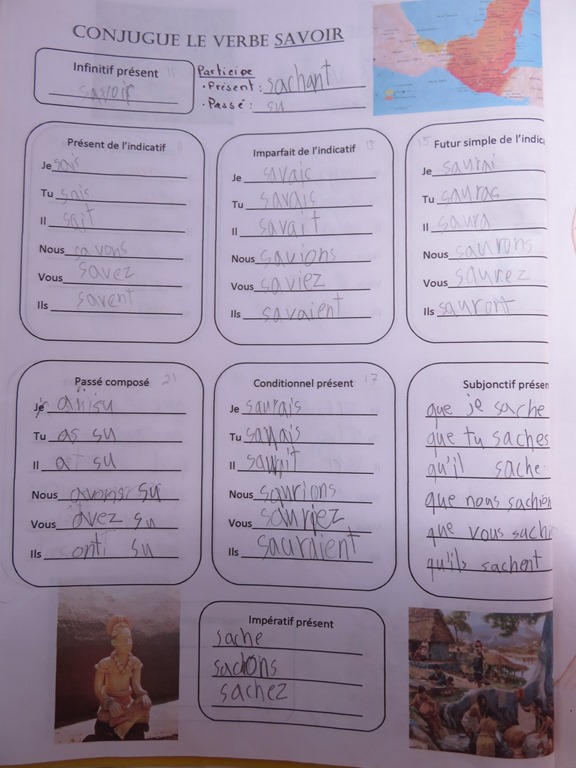 CONJUGUE LE VERBE SAVOIR
Infinitif présent 11
savoir
Participe
• Présent : sachant
• Passé : su
Présent de l'indicatif
Je sais
Tu sais
Il sait
Nous savons
Vous savez
Ils savent
Imparfait de l'indicatif 13
Je savais
Tu savais
Il savait
Nous savions
Vous saviez
Ils savaient
15 Futur simple de l'indic
Je saurai
Tu sauras
Il saura
Nous saurons
Vous saurez
Ils sauront
Passé composé 21
Je su
Tu as su
Il a su
Nous avons su
Vous avez su
Ils ont su
Conditionnel présent 17
Je saurais
Tu saurais
Il saurait
Nous saurions
Vous sauriez
Ils sauraient
Subjonctif présen
que je sache
que tu saches
qu'il sache
que nous sachion
que vous sachi
qu'ils sachent
Impératif présent
sache
sachons
sachez